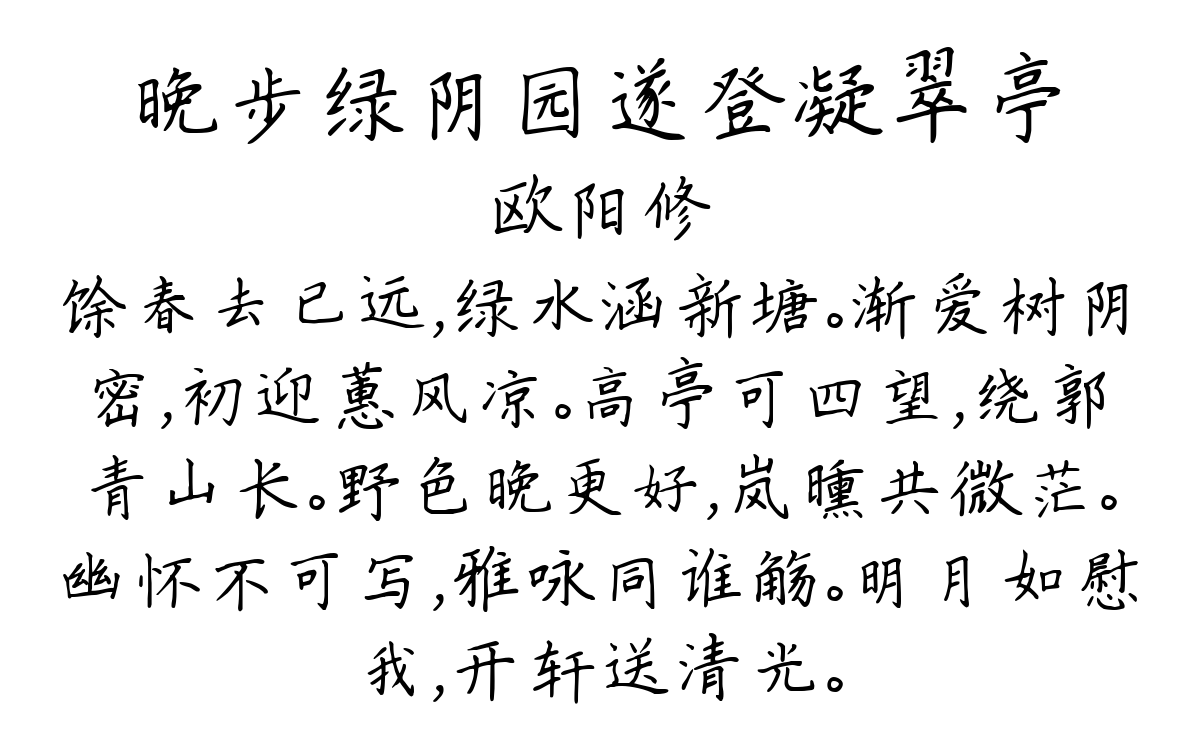 晚步绿阴园遂登凝翠亭
欧阳修
馀春去已远,绿水涵新塘。渐爱树阴
密,初迎蕙风凉。高亭可四望,绕郭
青山长。野色晚更好,岚曛共微茫。
幽怀不可写,雅咏同谁觞。明月如慰
我,开轩送清光。